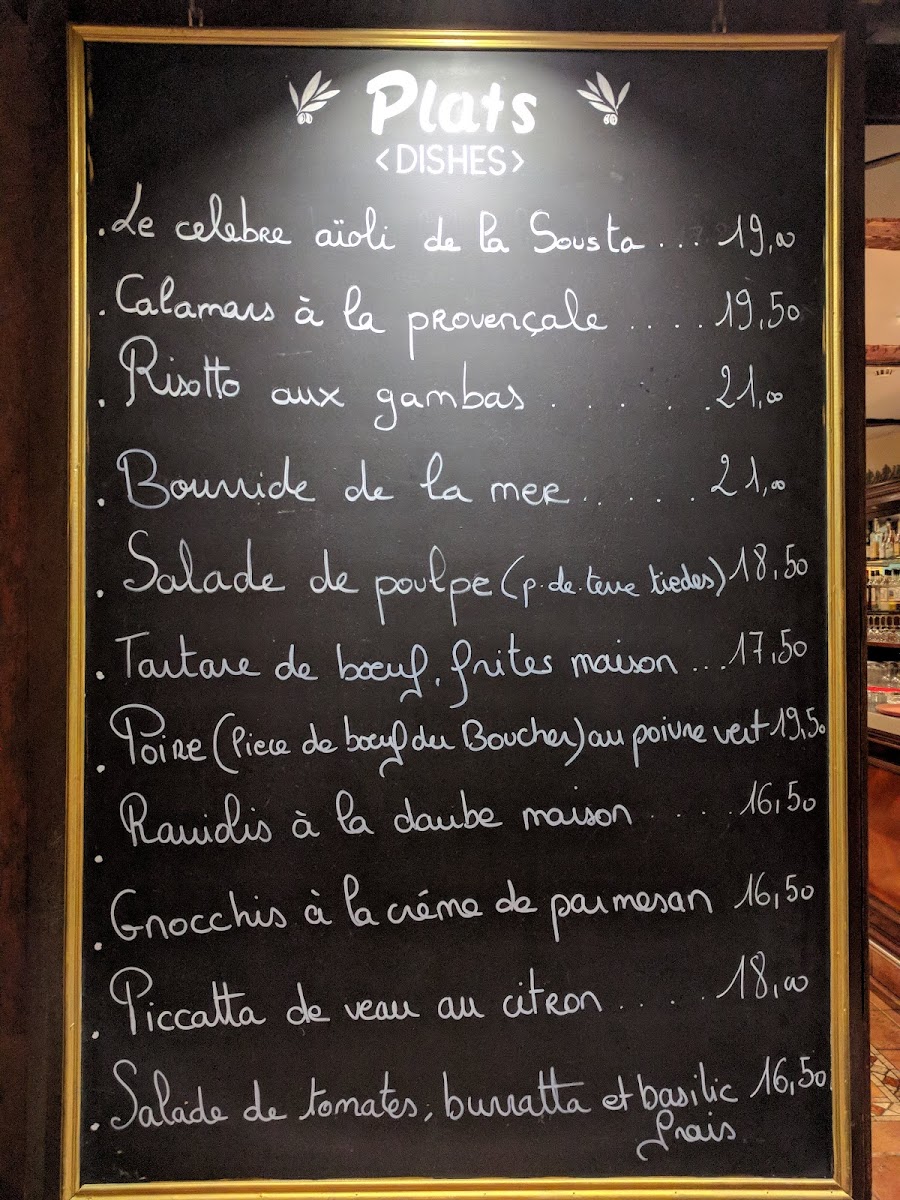 Plats
<DISHES>
. Le celebre aïoli de la Sousta ... 19,00
. Calamars à la provençale .... 19,50
. Risotto aux gambas ...... 21,00
. Bourride de la mer ..... 21,00
. Salade de poulpe (p. de terre tiedes) 18,50
. Tartare de bœuf, frites maison ... 17,50
. Poire (Piece de bœuf du Boucher) au poivre vert 19,50
. Raviolis à la daube maison .... 16,50
. Gnocchis à la créme de parmesan 16,50
. Piccatta de veau au citron ..... 18,00
. Salade de tomates, burratta et basilic 16,50
frais